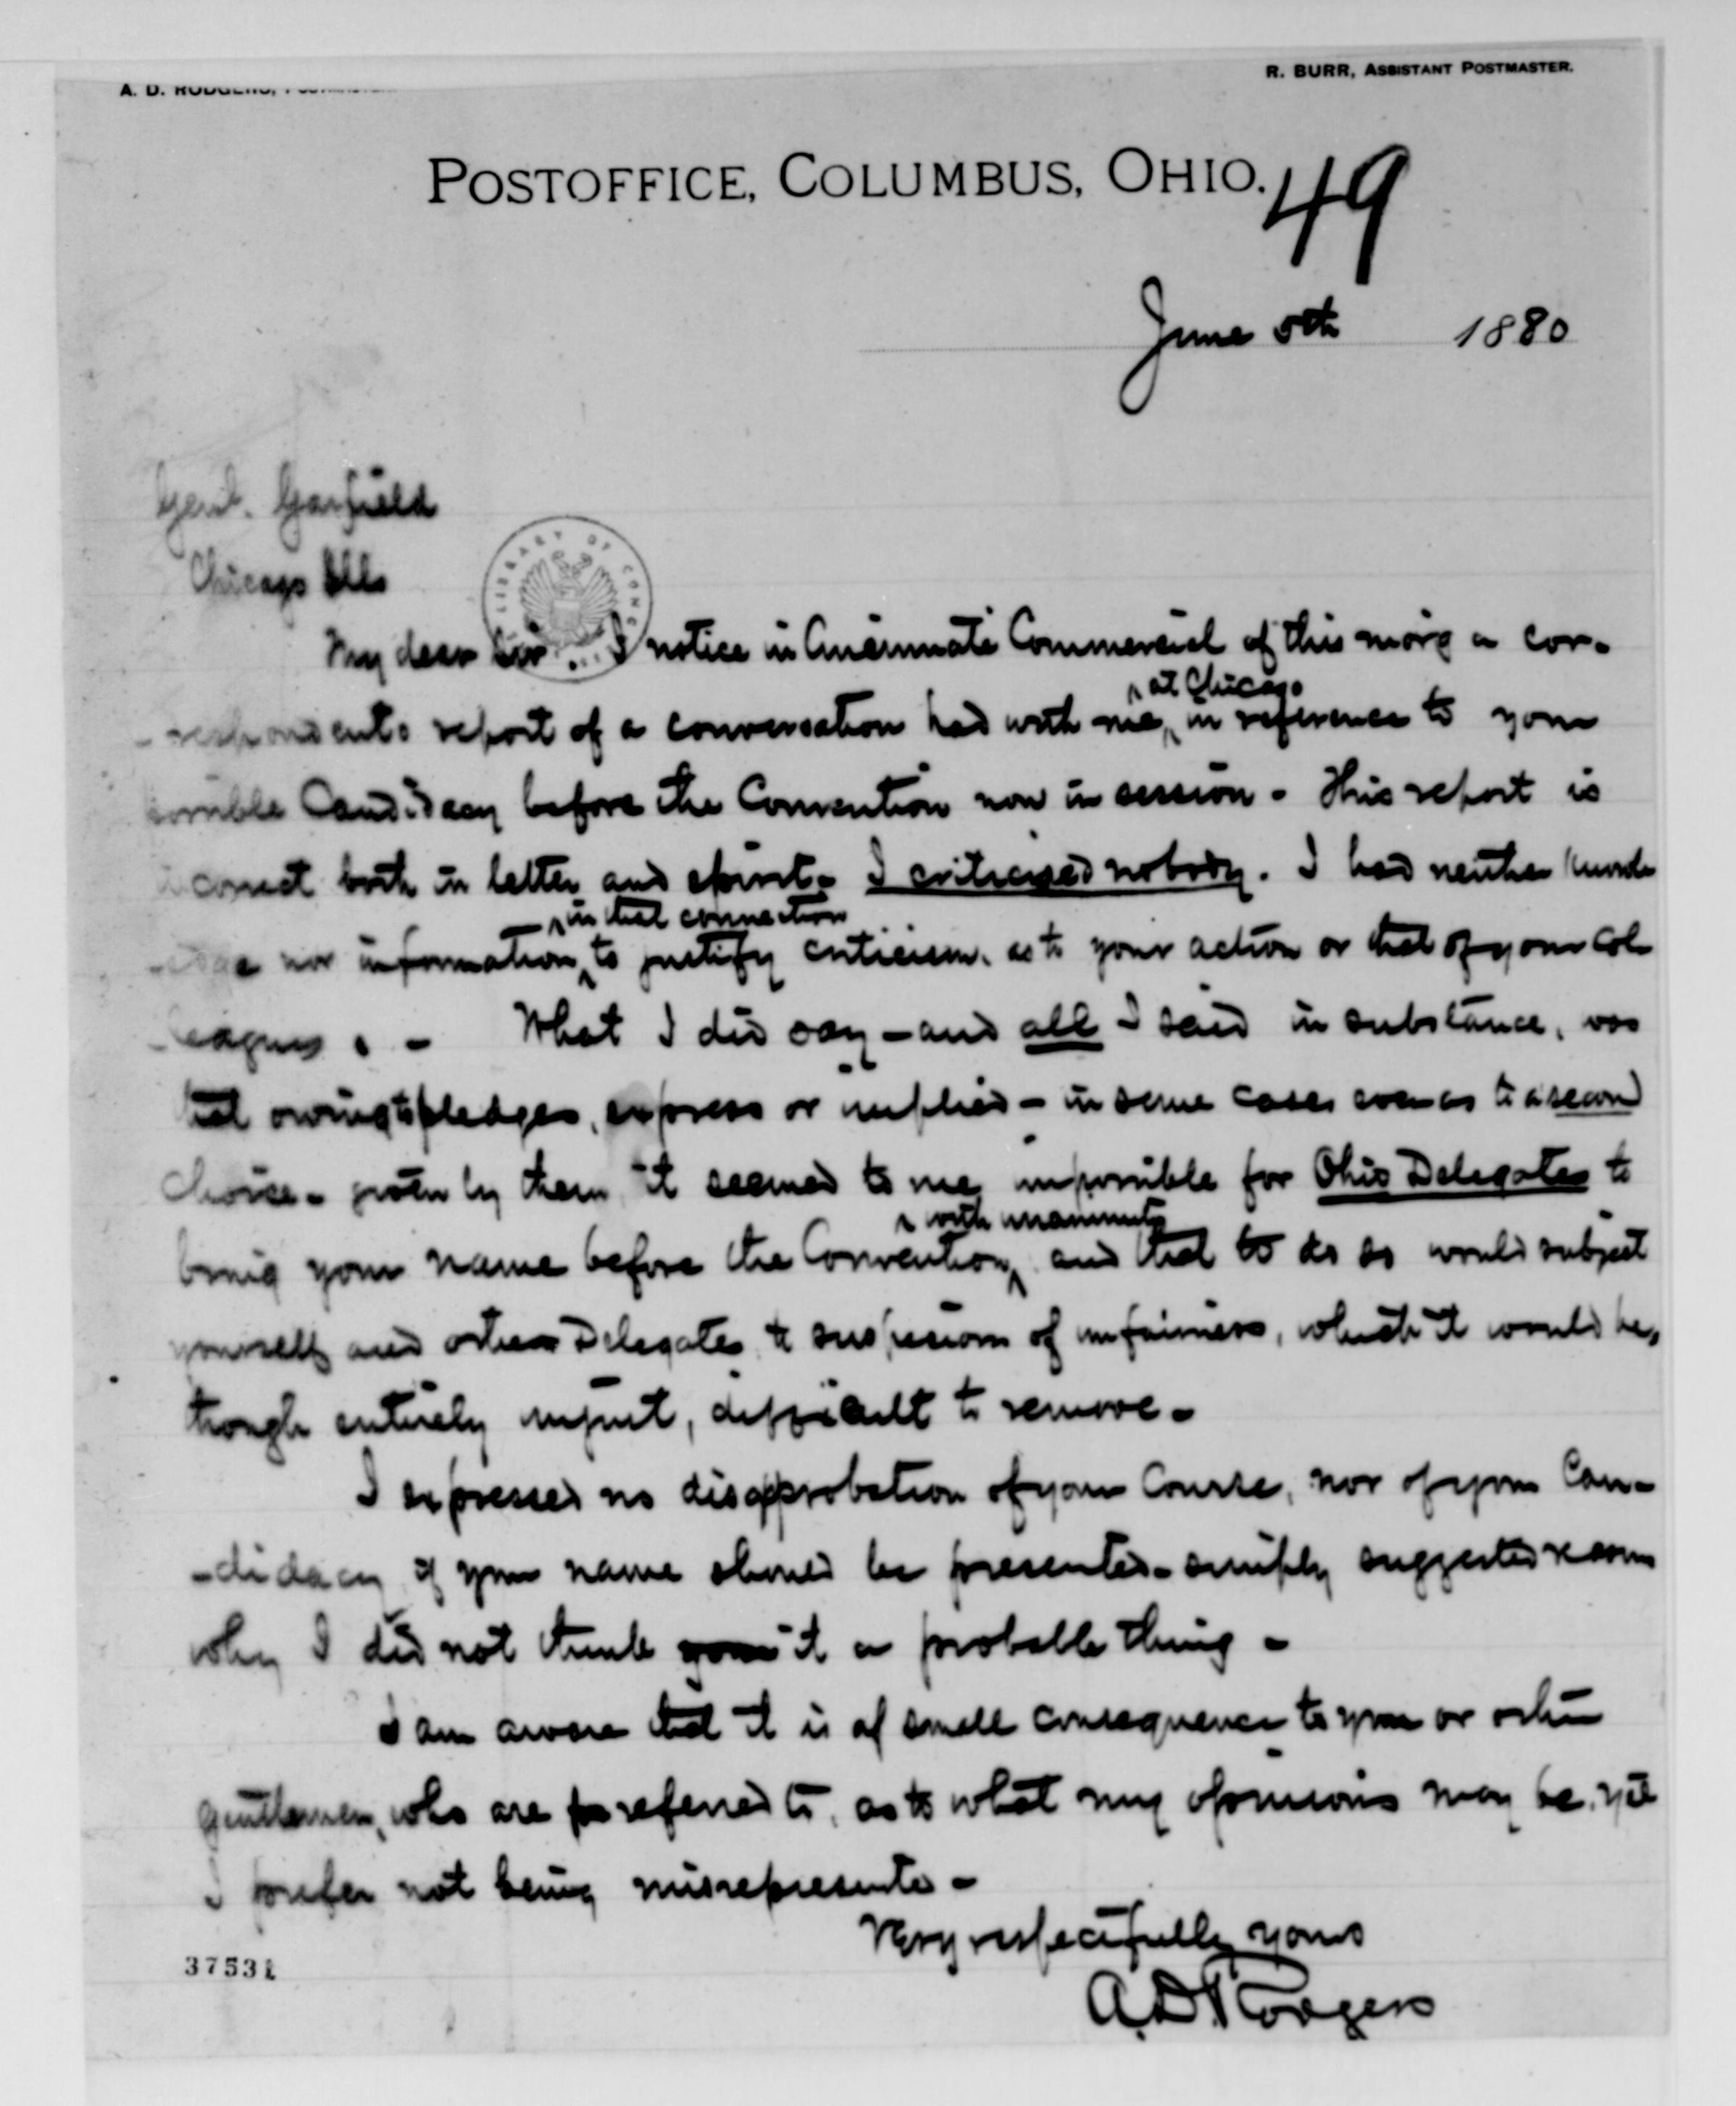 A. D. RODGERS, POSTMASTER.
R. BURR, ASSISTANT POSTMASTER.
POSTOFFICE, COLUMBUS, OHIO.
49
June 5th 1880
Genl. Garfield
Chicago Ills
LIBRARY OF CONG
My dear Sir ... I notice in Cincinnati Commercial of this morg a cor-
at Chicago
-respondents report of a conversation had with me, in reference to your
possible Candidacy before the Convention now in session - This report is
incorrect both in letter and spirit - I criticised nobody. I had neither knowl-
in that connection
-edge nor information, to justify criticism. as to your action or that of your Col-
-leagues. - What I did say - and all I said in substance, was
that owing to pledges, express or implied - in some cases even as to a second
choice - given by them, it seemed to me impossible for Ohio Delegates to
with unanimity
bring your name before the Convention, and that to do so would subject
yourself and other Delegates to suspicion of unfairness, which it would be,
though entirely unjust, difficult to remove -
I expressed no disapprobation of your Course, nor of your Can-
-didacy if your name should be presented - simply suggested reasons
why I did not think your it a probable thing -
I am aware that it is of small consequence to you or other
gentlemen, who are referred to, as to what my opinions may be. yet
I prefer not being misrepresented -
Very respectfully yours
A. D. Rodgers
37531